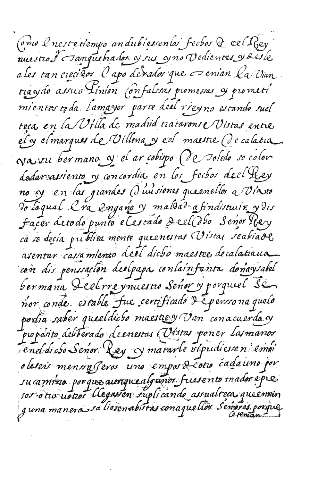 Como En este tiempo andubiesen los fechos del Rey
nuestro Sr tan quebrados y sus ynovedientes y desle
ales tan crecidos y apoderados que tenian la van
traydo assi Union con falsas promesas y prometi
mientos toda la mayor parte del rreyno estando suel
to ca en la Villa de madrid trataronse Vistas entre
el y el marques de Villena y el maestre de calatra
va su hermano y el arcobispo de Toledo so color
de dar asiento y concordia en los fechos del Rey
no y en las grandes divisiones que en ello avia sto
do lo qual Era engaño y maldad a fin distruir y dis
facer de todo punto el estado del dicho Señor Rey
ca se decia publica mente que en estas Vistas se abia de
asentar casamiento del dicho maestre de calatrava
con dispenssaçion del papa con la infanta doña ysabel
hermana del rrey nuestro Señor y porque el Se
ñor conde estable fue certificado de perssona que lo
podia saber que el dicho maestre y Van con acuerdo y
proposito deliberado de en estas Vistas poner las manos
en el dicho Señor Rey y matarle si pudiessen embi
o le seis mensajeros uno empos de otro cada uno por
su camino porque aunque algunos fuesen tomados e pre
sos otro u otros llegassen suplicando a su alteza que en nin
guna manera saliese nabistas con aquellos Señores porque